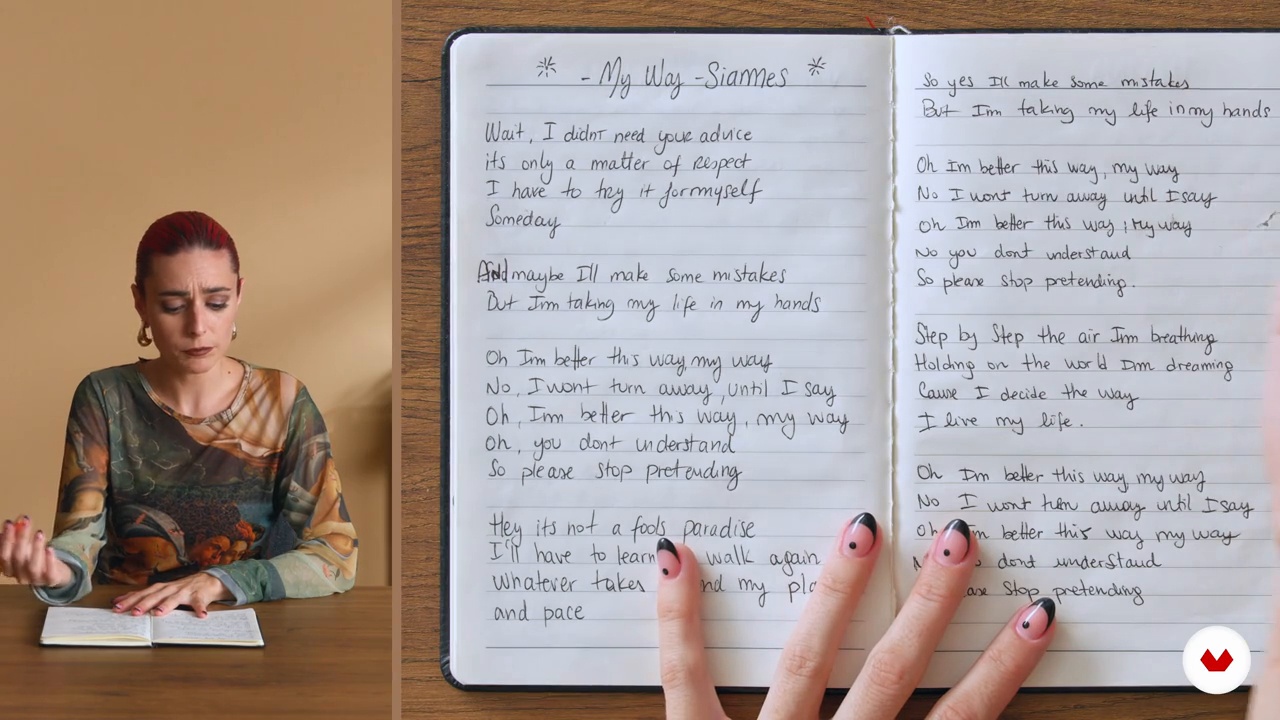 - My Way - Siammes
Wait, I didnt need your advice
its only a matter of respect
I have to try it for myself
Someday
And maybe Ill make some mistakes
But Im taking my life in my hands
Oh Im better this way my way
No, I wont turn away, until I say
Oh, Im better this way, my way
Oh, you dont understand
So please stop pretending
Hey its not a fools paradise
I'll have to learn walk again
whatever takes my
and pace
So yes Ill make some mistakes
But Im taking my life in my hands
Oh Im better this way, my way
No I wont turn away until I say
Oh Im better this way, my way
No you dont understand
So please stop pretending.
Step by Step the air Im breathing
Holding on the world Im dreaming
Cause I decide the way
I live my life.
Oh Im better this way my way
No I wont turn away until I say
Oh better this way my way
dont understand
stop pretending